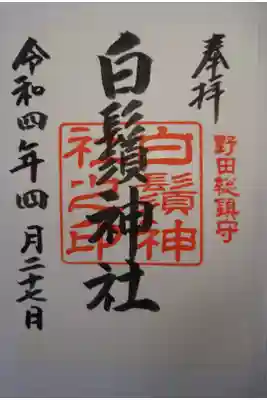 奉拝
野田総鎮守
白鬚神社
白鬚神社之印
令和四年四月二十七日